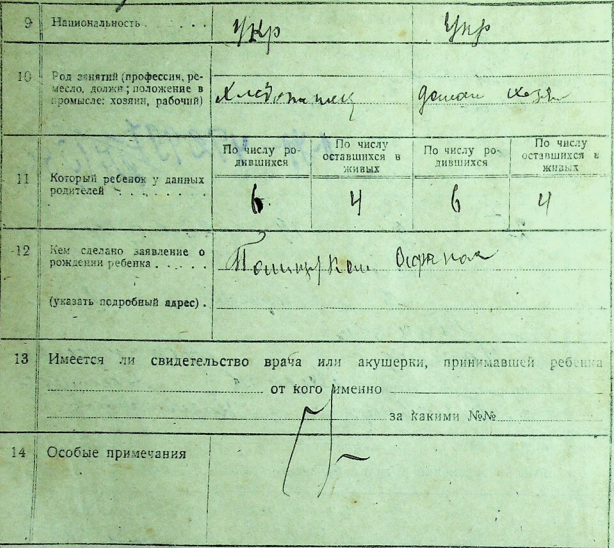 9 Национальность . . . . укр укр
10 Род занятий (профессия, ре-
месло, должн; положение в
промысле: хозяин, рабочий) хлебопашец домаш хозя
11 Который ребенок у данных
родителей . . . . . . .
По числу ро-
дившихся
По числу
оставшихся в
живых
По числу ро-
дившихся
По числу
оставшихся в
живых
6 4 6 4
12 Кем сделано заявление о
рождении ребенка . . . . .
(указать подробный адрес) .
13 Имеется ли свидетельство врача или акушерки, принимавшей ребенка
от кого именно
за какими №№
14 Особые примечания